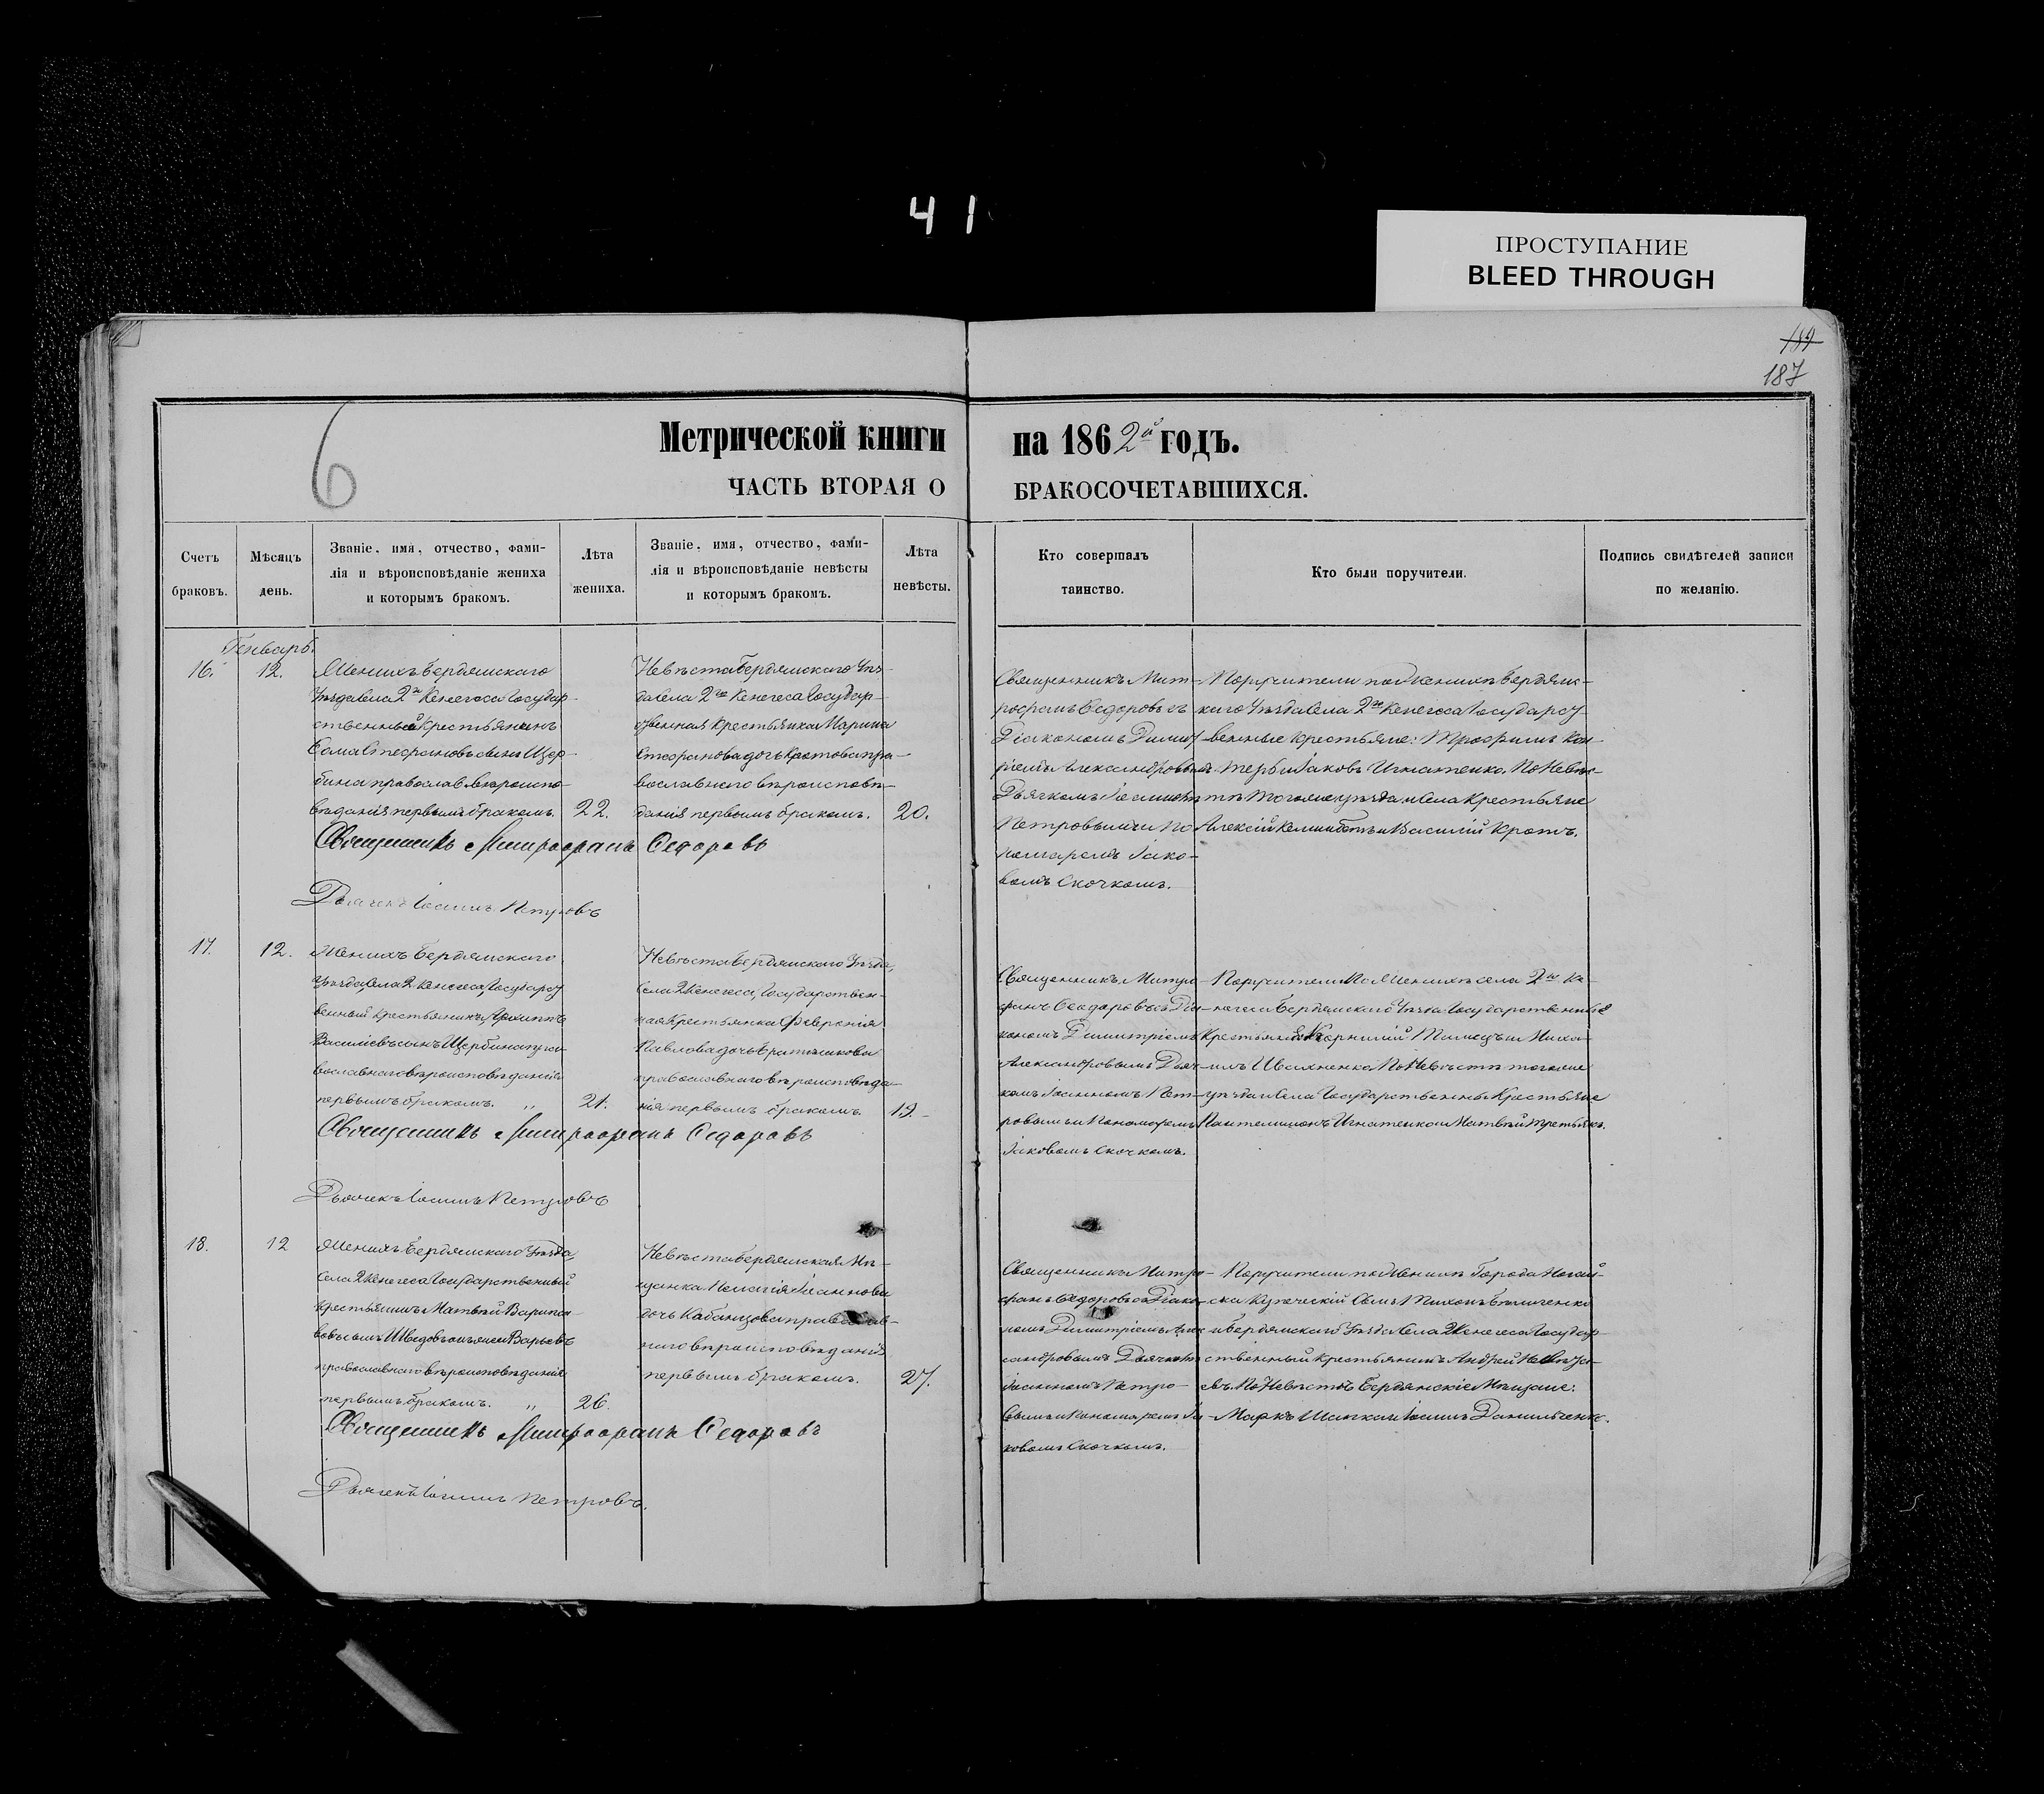 41
ПРОСТУПАНИЕ
BLEED THROUGH
189
187
6
Метрической книги на 1862й годъ.
ЧАСТЬ ВТОРАЯ О БРАКОСОЧЕТАВШИХСЯ.
Счетъ браковъ.
Мѣсяцъ день.
Званіе, имя, отчество, фами-
лія и вѣроисповѣданіе жениха
и которымъ бракомъ.
Лѣта жениха.
Званіе, имя, отчество, фами-
лія и вѣроисповѣданіе невѣсты
и которымъ бракомъ.
Лѣта невѣсты.
Кто совершалъ
таинство.
Кто были поручители.
Подпись свидѣтелей записи
по желанію.
Генварь.
16.
12.
Женихъ Бердянскаго
Уѣзда села 2го Кенегеса Государ-
ственный Крестьянинъ
Стефановъ сынъ Щер-
бина православ. вѣроиспо-
вѣданія первымъ бракомъ.
22.
Невѣста Бердянскаго Уѣз-
да села 2го Кенегеса Государ-
ственная Крестьянка Марина
Стефанова дочь Кротова пра-
вославнаго вѣроисповѣ-
данія первымъ бракомъ.
20.
Священникъ Мит-
рофанъ Федоровъ съ
Діакономъ Димит
ріемъ Александровымъ
Дьячкомъ Іоанномъ
Петровымъ и По
номаремъ Іако-
вомъ Скочкомъ.
Поручители по Женихѣ Бердянс-
каго Уѣзда села 2го Кенегеса Государст
венные крестьяне: Трофимъ
Іаковъ Игнатенко. По Невѣс-
тѣ тогоже уѣзда и села Крестьяне
Алексій и Василій Кротъ.
Священникъ Митрофанъ Федоровъ
Дьячекъ Іоаннъ Петровъ
17.
12.
Женихъ Бердянскаго
Уѣзда, села 2 Кенегеса, Государст
венный Крестьянинъ, Архиппъ
Василіевъ сынъ Щербина пра-
вославнаго вѣроисповѣданія
первымъ бракомъ. „
21.
Невѣста Бердянскаго Уѣзда,
села 2 Кенегеса, Государствен-
ная Крестьянка Февронія
Павлова дочь
православнаго вѣроисповѣда-
нія первымъ бракомъ.
19.
Священникъ Митро
фанъ Феодоровъ съ Діа-
кономъ Димитріемъ
Александровымъ Дьяч-
комъ Іоанномъ Пет-
ровымъ и Пономаремъ
Іаковомъ Скочкомъ.
Поручители По Женихѣ села 2го Ке-
негеса Бердянскаго Уѣзда Государственные
Крестьяне Корнилій и Миха-
илъ Ивахненко По Невѣстѣ тогоже
уѣзда и села Государственны Крестьяне
Пантелимонъ Игнатенко и Матвѣй Третьякъ.
Священникъ Митрофанъ Федоровъ
Дьячекъ Іоаннъ Петровъ
18.
12
Женихъ Бердянскаго Уѣзда
села 2 Кенегеса Государственный
Крестьянинъ Матвѣй
православнаго вѣроисповѣданія
первымъ бракомъ. „
26.
Невѣста Бердянская Мѣ-
щанка Пелагія Іоаннова
дочь Кабанцова православ-
наго вѣроисповѣданія
первымъ бракомъ.
27.
Священникъ Митро-
фанъ Федоровъ съ Діако-
номъ Димитріемъ Алек
сандровымъ Дьячкомъ
Іоанномъ Петро-
вымъ и Пономаремъ Іа-
ковомъ Скочкомъ.
Поручители по Женихѣ Города Ногай-
ска Купеческій Сынъ Тихонъ
и Бердянскаго Уѣзда села 2 Кенегеса Государ-
ственный крестьянинъ Андрей
По Невѣстѣ Бердянскіе Мѣщане:
Маркъ Шапка и Іоаннъ Данильченко.
Священникъ Митрофанъ Федоровъ
Дьячекъ Іоаннъ Петровъ.